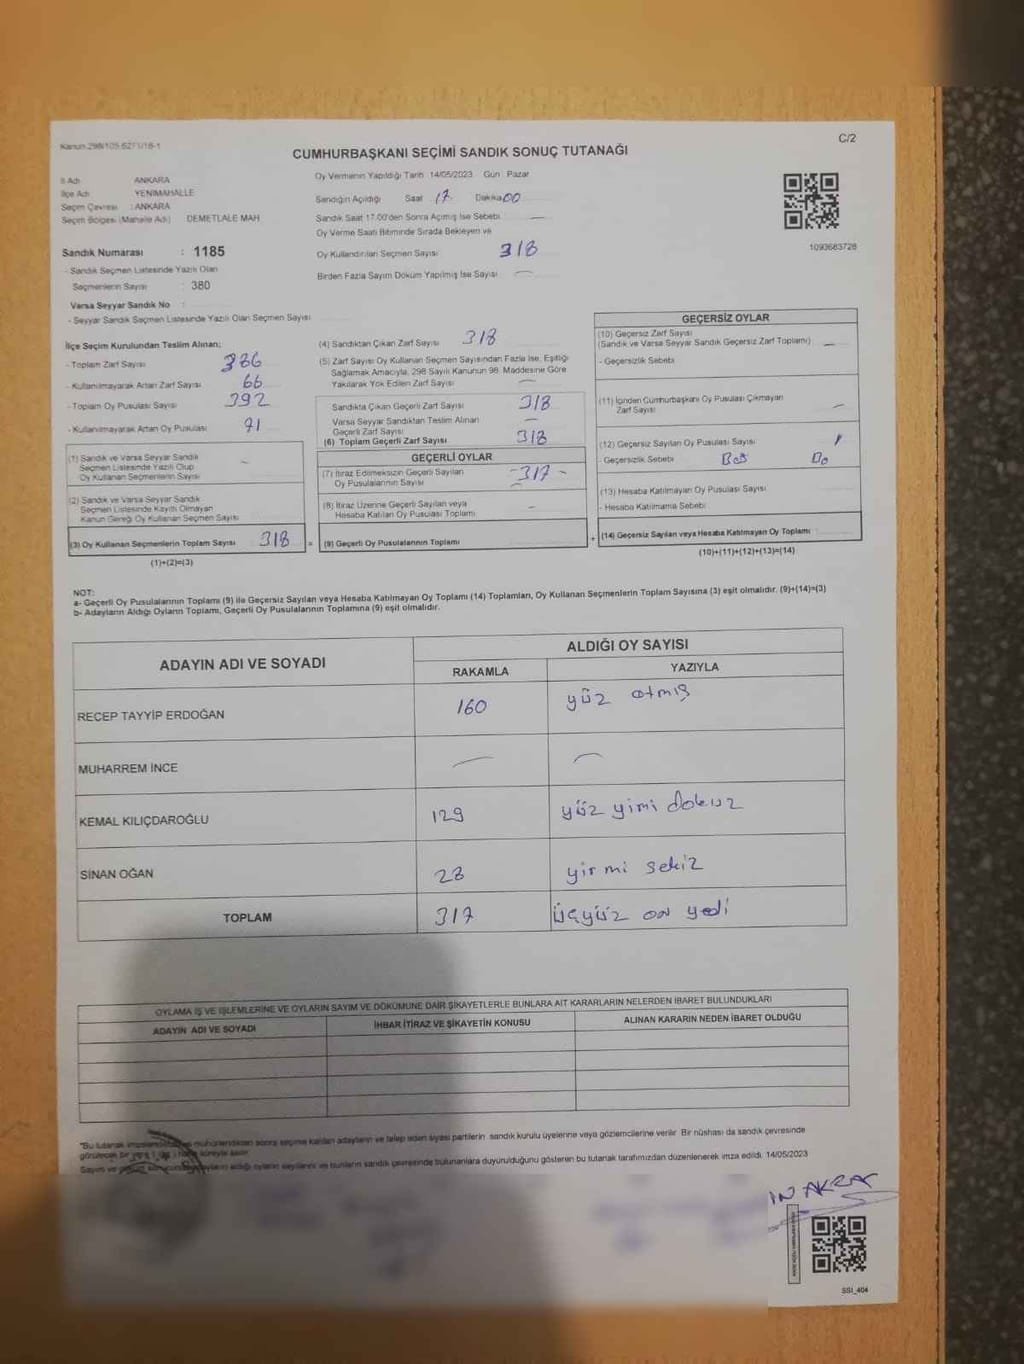 Kanun 298/105
C/2
CUMHURBAŞKANI SEÇİMİ SANDIK SONUÇ TUTANAĞI
İl Adı ANKARA
İlçe Adı YENİMAHALLE
Seçim Çevresi : ANKARA
Seçim Bölgesi (Mahalle Adı) DEMETLALE MAH
Sandık Numarası : 1185
- Sandık Seçmen Listesinde Yazılı Olan
Seçmenlerin Sayısı : 380
Varsa Seyyar Sandık No :
- Seyyar Sandık Seçmen Listesinde Yazılı Olan Seçmen Sayısı
Oy Vermenin Yapıldığı Tarih 14/05/2023 Gün Pazar
Sandığın Açıldığı Saat 17 Dakika 00
Sandık Saat 17.00'den Sonra Açılmış İse Sebebi —
Oy Verme Saati Bitiminde Sırada Bekleyen ve
Oy Kullandırılan Seçmen Sayısı 318
Birden Fazla Sayım Döküm Yapılmış İse Sayısı —
1093683728
İlçe Seçim Kurulundan Teslim Alınan;
- Toplam Zarf Sayısı 386
- Kullanılmayarak Artan Zarf Sayısı 66
- Toplam Oy Pusulası Sayısı 392
- Kullanılmayarak Artan Oy Pusulası 91
(1) Sandık ve Varsa Seyyar Sandık
Seçmen Listesinde Yazılı Olup
Oy Kullanan Seçmenlerin Sayısı —
(2) Sandık ve Varsa Seyyar Sandık
Seçmen Listesinde Kayıtlı Olmayan
Kanun Gereği Oy Kullanan Seçmen Sayısı
(3) Oy Kullanan Seçmenlerin Toplam Sayısı 318
(1)+(2)=(3)
(4) Sandıktan Çıkan Zarf Sayısı 318
(5) Zarf Sayısı Oy Kullanan Seçmen Sayısından Fazla İse, Eşitliği
Sağlamak Amacıyla, 298 Sayılı Kanunun 98. Maddesine Göre
Yakılarak Yok Edilen Zarf Sayısı —
Sandıkta Çıkan Geçerli Zarf Sayısı 318
Varsa Seyyar Sandıktan Teslim Alınan
Geçerli Zarf Sayısı —
(6) Toplam Geçerli Zarf Sayısı 318
GEÇERLİ OYLAR
(7) İtiraz Edilmeksizin Geçerli Sayılan
Oy Pusulalarının Sayısı - 317 -
(8) İtiraz Üzerine Geçerli Sayılan veya
Hesaba Katılan Oy Pusulası Toplamı —
= (9) Geçerli Oy Pusulalarının Toplamı
GEÇERSİZ OYLAR
(10) Geçersiz Zarf Sayısı
(Sandık ve Varsa Seyyar Sandık Geçersiz Zarf Toplamı) —
- Geçersizlik Sebebi
(11) İçinden Cumhurbaşkanı Oy Pusulası Çıkmayan
Zarf Sayısı —
(12) Geçersiz Sayılan Oy Pusulası Sayısı 1
- Geçersizlik Sebebi Boş
(13) Hesaba Katılmayan Oy Pusulası Sayısı
- Hesaba Katılmama Sebebi
+ (14) Geçersiz Sayılan veya Hesaba Katılmayan Oy Toplamı
(10)+(11)+(12)+(13)=(14)
NOT:
a- Geçerli Oy Pusulalarının Toplamı (9) ile Geçersiz Sayılan veya Hesaba Katılmayan Oy Toplamı (14) Toplamları, Oy Kullanan Seçmenlerin Toplam Sayısına (3) eşit olmalıdır. (9)+(14)=(3)
b- Adayların Aldığı Oyların Toplamı, Geçerli Oy Pusulalarının Toplamına (9) eşit olmalıdır.
ADAYIN ADI VE SOYADI
ALDIĞI OY SAYISI
RAKAMLA YAZIYLA
RECEP TAYYİP ERDOĞAN 160 yüz atmış
MUHARREM İNCE — —
KEMAL KILIÇDAROĞLU 129 yüz yimi dokuz
SİNAN OĞAN 28 yirmi sekiz
TOPLAM 317 üçyüz on yedi
OYLAMA İŞ VE İŞLEMLERİNE VE OYLARIN SAYIM VE DÖKÜMÜNE DAİR ŞİKAYETLERLE BUNLARA AİT KARARLARIN NELERDEN İBARET BULUNDUKLARI
ADAYIN ADI VE SOYADI İHBAR İTİRAZ VE ŞİKAYETİN KONUSU ALINAN KARARIN NEDEN İBARET OLDUĞU
"Bu tutanak mühürlendikten sonra seçime katılan adayların ve talep eden siyasi partilerin sandık kurulu üyelerine veya gözlemcilerine verilir. Bir nüshası da sandık çevresinde
görülecek bir yere süreyle asılır.
Sayım ve aldığı oyların sayılarını ve bunların sandık çevresinde bulunanlara duyurulduğunu gösteren bu tutanak tarafımızdan düzenlenerek imza edildi. 14/05/2023
SSI_404